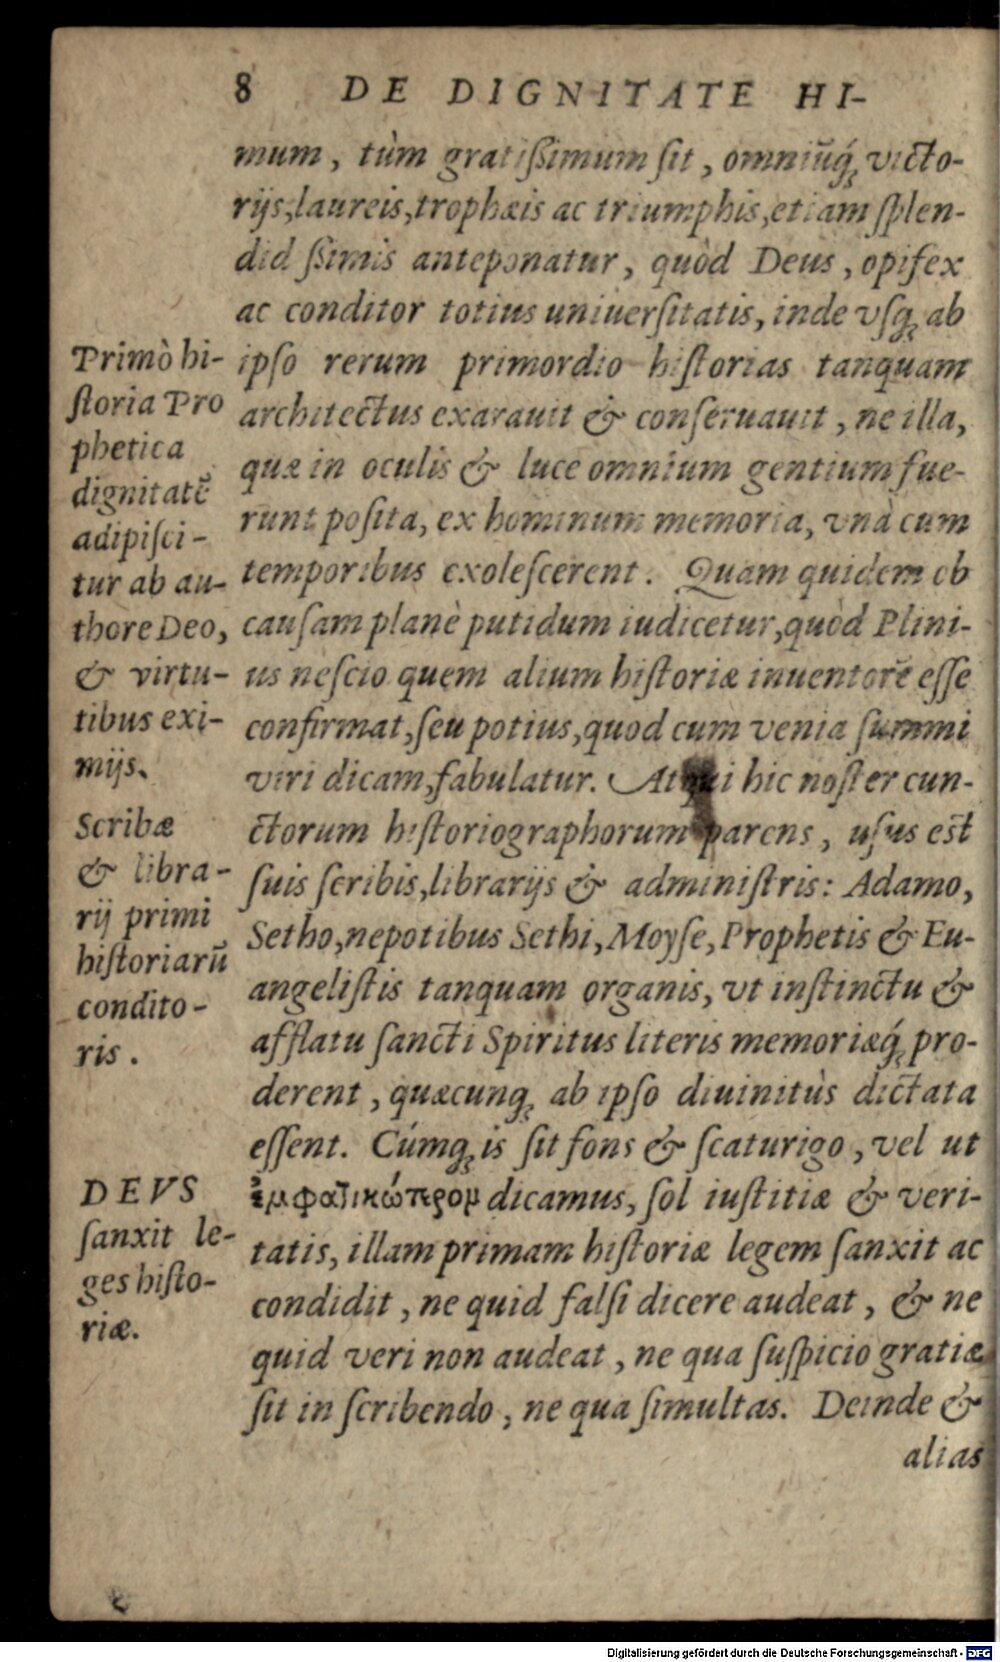 8 DE DIGNITATE HI-
mum, tùm gratiſsimum ſit, omniūq́ꝫ victo-
rijs, laureis, trophæis ac triumphis, etiam ſplen-
didſsimis anteponatur, quòd Deus, opifex
ac conditor totius uniuerſitatis, inde vſqꝫ ab
ipſo rerum primordio hiſtorias tanquam
architectus exarauit & conſeruauit, ne illa,
quæ in oculis & luce omnium gentium fue-
runt poſita, ex hominum memoria, vnà cum
temporibus exoleſcerent. Quam quidem ob
cauſam planè putidum iudicetur, quòd Plini-
us neſcio quem alium hiſtoriæ inuentorē eſſe
confirmat, ſeu potius, quod cum venia ſummi
viri dicam, fabulatur. Atqui hic noſter cun-
ctorum hiſtoriographorum parens, uſus eſt
ſuis ſcribis, librarijs & adminiſtris: Adamo,
Setho, nepotibus Sethi, Moyſe, Prophetis & Eu-
angeliſtis tanquam organis, vt inſtinctu &
afflatu ſancti Spiritus literis memoriæq́ꝫ pro-
derent, quæcunqꝫ ab ipſo diuinitùs dictata
eſſent. Cúmqꝫ is ſit fons & ſcaturigo, vel ut
ἐμφατικώτερον dicamus, ſol iuſtitiæ & veri-
tatis, illam primam hiſtoriæ legem ſanxit ac
condidit, ne quid falſi dicere audeat, & ne
quid veri non audeat, ne qua ſuſpicio gratiæ
ſit in ſcribendo, ne qua ſimultas. Deinde &
alias
Primò hi-
ſtoria Pro
phetica
dignitatē
adipiſci-
tur ab au-
thore Deo,
& virtu-
tibus exi-
mijs.
Scribæ
& libra-
rij primi
hiſtoriarū
condito-
ris.
DEVS
ſanxit le-
ges hiſto-
riæ.
Digitalisierung gefördert durch die Deutsche Forschungsgemeinschaft - DFG